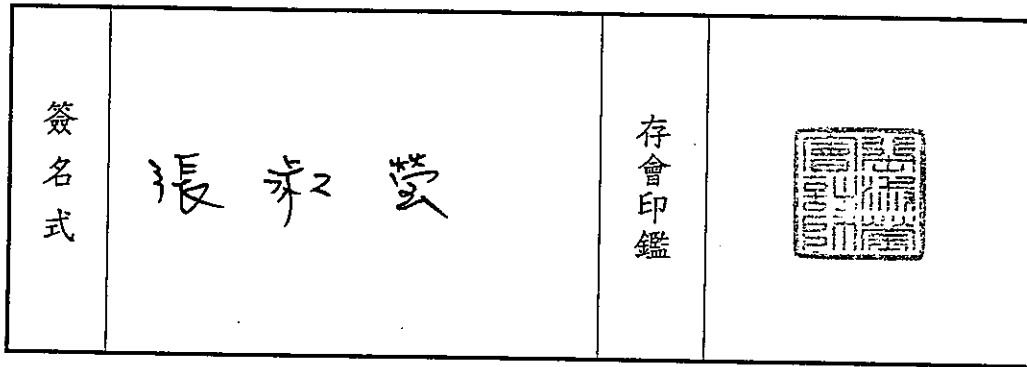 簽名式
張淑瑩
存會印鑑